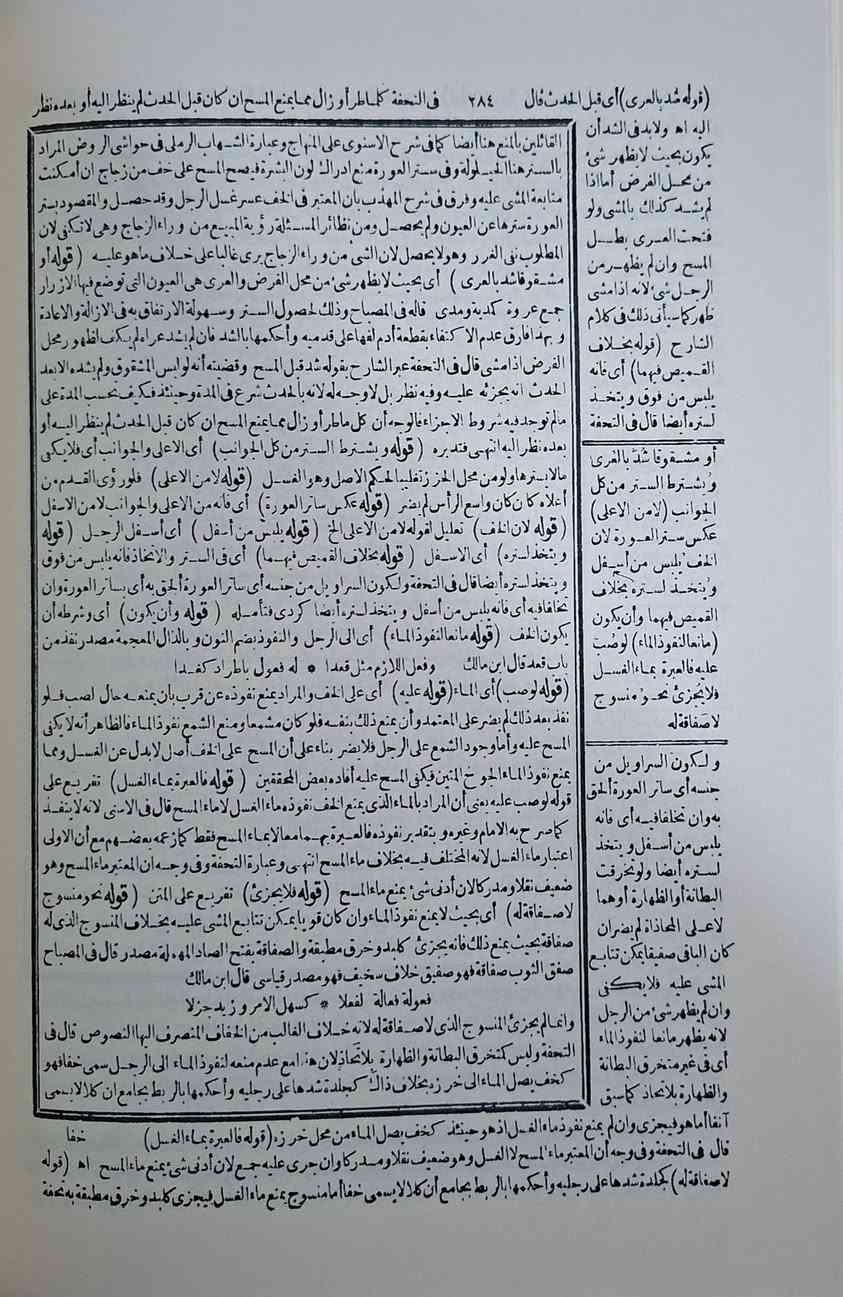 (قوله شد بالعرى) أى قبل الحدث قال
٢٨٤
فى التحفة كلما طرأ و زال مما يمنع المسح ان كان قبل الحدث لم ينظر اليه أو بعده نظر
اليه اه ولابد فى الشد أن
يكون بحيث لا يظهر شئ
من محل الفرض أما اذا
لم يشد كذلك بالمشى ولو
فتحت العرى بطل
المسح وان لم يظهر من
الرجل شئ لانه اذا مشى
ظهر كما سيأتى ذلك فى كلام
الشارح (قوله بخلاف
القميص فيهما) أى فانه
يلبس من فوق ويتخذ
لستره أيضا قال فى التحفة
أو مشقوقا شد بالعرى
ويشترط الستر من كل
الجوانب (لا من الاعلى)
عكس ستر العورة لان
الخف يلبس من أسفل
ويتخذ لستره بخلاف
القميص فيهما وأن يكون
(مانعا لنفوذ الماء) لو صب
عليه فالعبرة بماء الغسل
فلا يجزئ نحو منسوج
لا صفاقة له
ولكون السراويل من
جنسه أى ساتر العورة ألحق
به وان تخلفا فيه أى فانه
يلبس من أسفل ويتخذ
لستره أيضا ولو تخرقت
البطانة أو الظهارة أو هما
لا على المحاذاة لم يضر ان
كان الباقى صفيقا يمكن تتابع
المشى عليه فلا يكفى
وان لم يظهر شئ من الرجل
لانه يظهر مانعا لنفوذ الماء
أى فى غير متخرق البطانة
والظهارة بلا تحاذ كما سبق
القائلين بالمنع هنا أيضا كما فى شرح الاسنوى على المنهاج وعبارة الشهاب الرملى فى حواشى الروض المراد
بالستر هنا الحيلولة وفى ستر العورة منع ادراك لون البشرة فيصح المسح على خف من زجاج ان أمكنت
متابعة المشى عليه وفرق فى شرح المهذب بان المعتبر فى الخف عسر غسل الرجل وقد حصل والمقصود بستر
العورة سترها عن العيون ولم يحصل ومن نظائر المسئلة رؤية المبيع من وراء الزجاج وهى لا تكفى لان
المطلوب نفى الغرر وهو لا يحصل لان الشئ من وراء الزجاج يرى غالبا على خلاف ما هو عليه (قوله أو
مشقوقا شد بالعرى) أى بحيث لا يظهر شئ من محل الفرض والعرى هى العيون التى توضع فيها الازرار
جمع عروة كمدية ومدى قاله فى المصباح وذلك لحصول الستر وسهولة الارتفاق به فى الازالة والاعادة
وبهذا فارق عدم الاكتفاء بقطعة أدم لفها على قدميه وأحكمها بالشد فان لم يشد عراه لم يكف لظهور محل
الفرض اذا مشى قال فى التحفة عبر الشارح بقوله شد قبل المسح وقضيته أنه لو لبس المشقوق ولم يشده الا بعد
الحدث انه يجزئه عليه وفيه نظر بل لا وجه له لانه بالحدث شرع فى المدة وحينئذ فكيف تحسب المدة على
مالم توجد فيه شروط الاجزاء فالوجه أن كل ما طر أو زال مما يمنع المسح ان كان قبل الحدث لم ينظر اليه أو
بعده نظر اليه انتهى فتدبره (قوله ويشترط الستر من كل الجوانب) أى الاعلى والجوانب أى فلا يكفى
مالا يسترها ولو من محل الخرز تغليبا لحكم الاصل وهو الغسل (قوله لا من الاعلى) فلو رؤى القدم من
أعلاه كان كان واسع الرأس لم يضر (قوله عكس ساتر العورة) أى فانه من الاعلى والجوانب لا من الاسفل
(قوله لان الخف) تعليل لقوله لا من الاعلى الخ (قوله يلبس من أسفل) أى أسفل الرجل (قوله
ويتخذ لستره) أى الاسفل (قوله بخلاف القميص فيهما) أى فى الستر والاتخاذ فانه يلبس من فوق
ويتخذ لستره أيضا قال فى التحفة ولكون السراويل من جنسه أى ساتر العورة ألحق به أى بساتر العورة وان
تخالفا فيه أى فانه يلبس من أسفل ويتخذ لستره أيضا كردى فتأمله (قوله وأن يكون) أى وشرطه أن
يكون الخف (قوله مانعا لنفوذ الماء) أى الى الرجل والنفوذ بضم النون وبالذال المعجمة مصدر نفذ من
باب قعد قال ابن مالك وفعل اللازم مثل قعدا * له فعول باطراد كغدا
(قوله لو صب) أى الماء (قوله عليه) أى على الخف والمراد يمنع نفوذه عن قرب بان يمنعه حال الصب فلو
نفذ بعد ذلك لم يضر على المعتمد وأن يمنع ذلك بنفسه فلو كان مشمعا ومنع الشمع نفوذ الماء فالظاهر أنه لا يكفى
المسح عليه وأما وجود الشمع على الرجل فلا يضر بناء على أن المسح على الخف أصل لا بدل عن الغسل ومما
يمنع نفوذ الماء الجوخ المتين فيكفى المسح عليه أفاده بعض المحققين (قوله فالعبرة بماء الغسل) تفريع على
قوله لو صب عليه يعنى أن المراد بالماء الذى يمنع الخف نفوذه ماء الغسل لا ماء المسح قال فى الاسنى لانه لا ينفذ
كما صرح به الامام وغيره وبتقدير نفوذه فالعبرة بهما معا لا بماء المسح فقط كما زعمه بعضهم مع أن الاولى
اعتبار ماء الغسل لانه المختلف فيه بخلاف ماء المسح انتهى وعبارة التحفة وفى وجه ان المعتبر ماء المسح وهو
ضعيف نقلا ومدركا لان أدنى شئ يمنع ماء المسح (قوله فلا يجزئ) تفريع على المتن (قوله نحو منسوج
لا صفاقة له) أى بحيث لا يمنع نفوذ الماء وان كان قويا يمكن تتابع المشى عليه بخلاف المنسوج الذى له
صفاقة بحيث يمنع ذلك فانه يجزئ كلبد وخرق مطبقة والصفاقة بفتح الصاد المهملة مصدر قال فى المصباح
صفق الثوب صفاقة فهو صفيق خلاف سخيف فهو مصدر قياسى قال ابن مالك
فعولة فعالة لفعلا * كسهل الامر وزيد جزلا
وانما لم يجزئ المنسوج الذى لا صفاقة له لانه خلاف الغالب من الخفاف المنصرف اليها النصوص قال فى
التحفة وليس كمتخرق البطانة والظهارة بلا تحاذ لان هذا مع عدم منعه لنفوذ الماء الى الرجل سمى خفا فهو
كخف يصل الماء الى خرزه بخلاف ذاك كجلدة شدها على رجليه وأحكمها بالربط بجامع ان كلا لا يسمى
خفا
آنفا أما هو فيجزى وان لم يمنع نفوذ ماء الغسل اذ هو حينئذ كخف يصل الماء من محل خرزه (قوله فالعبرة بماء الغسل)
قال فى التحفة وفى وجه أن المعتبر ماء المسح لا الغسل وهو ضعيف نقلا ومدركا وان جرى عليه جمع لان أدنى شئ يمنع ماء المسح اه (قوله
لا صفاقة له) كجلدة شدها على رجليه وأحكمها بالربط بجامع أن كلا لا يسمى خفا أما منسوج يمنع ماء الغسل فيجزى كلبد وخرق مطبقة به تحفة